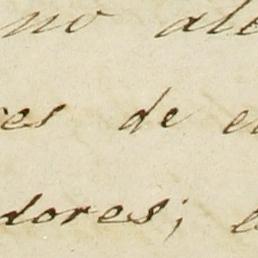 no ale
res de e
dores; e